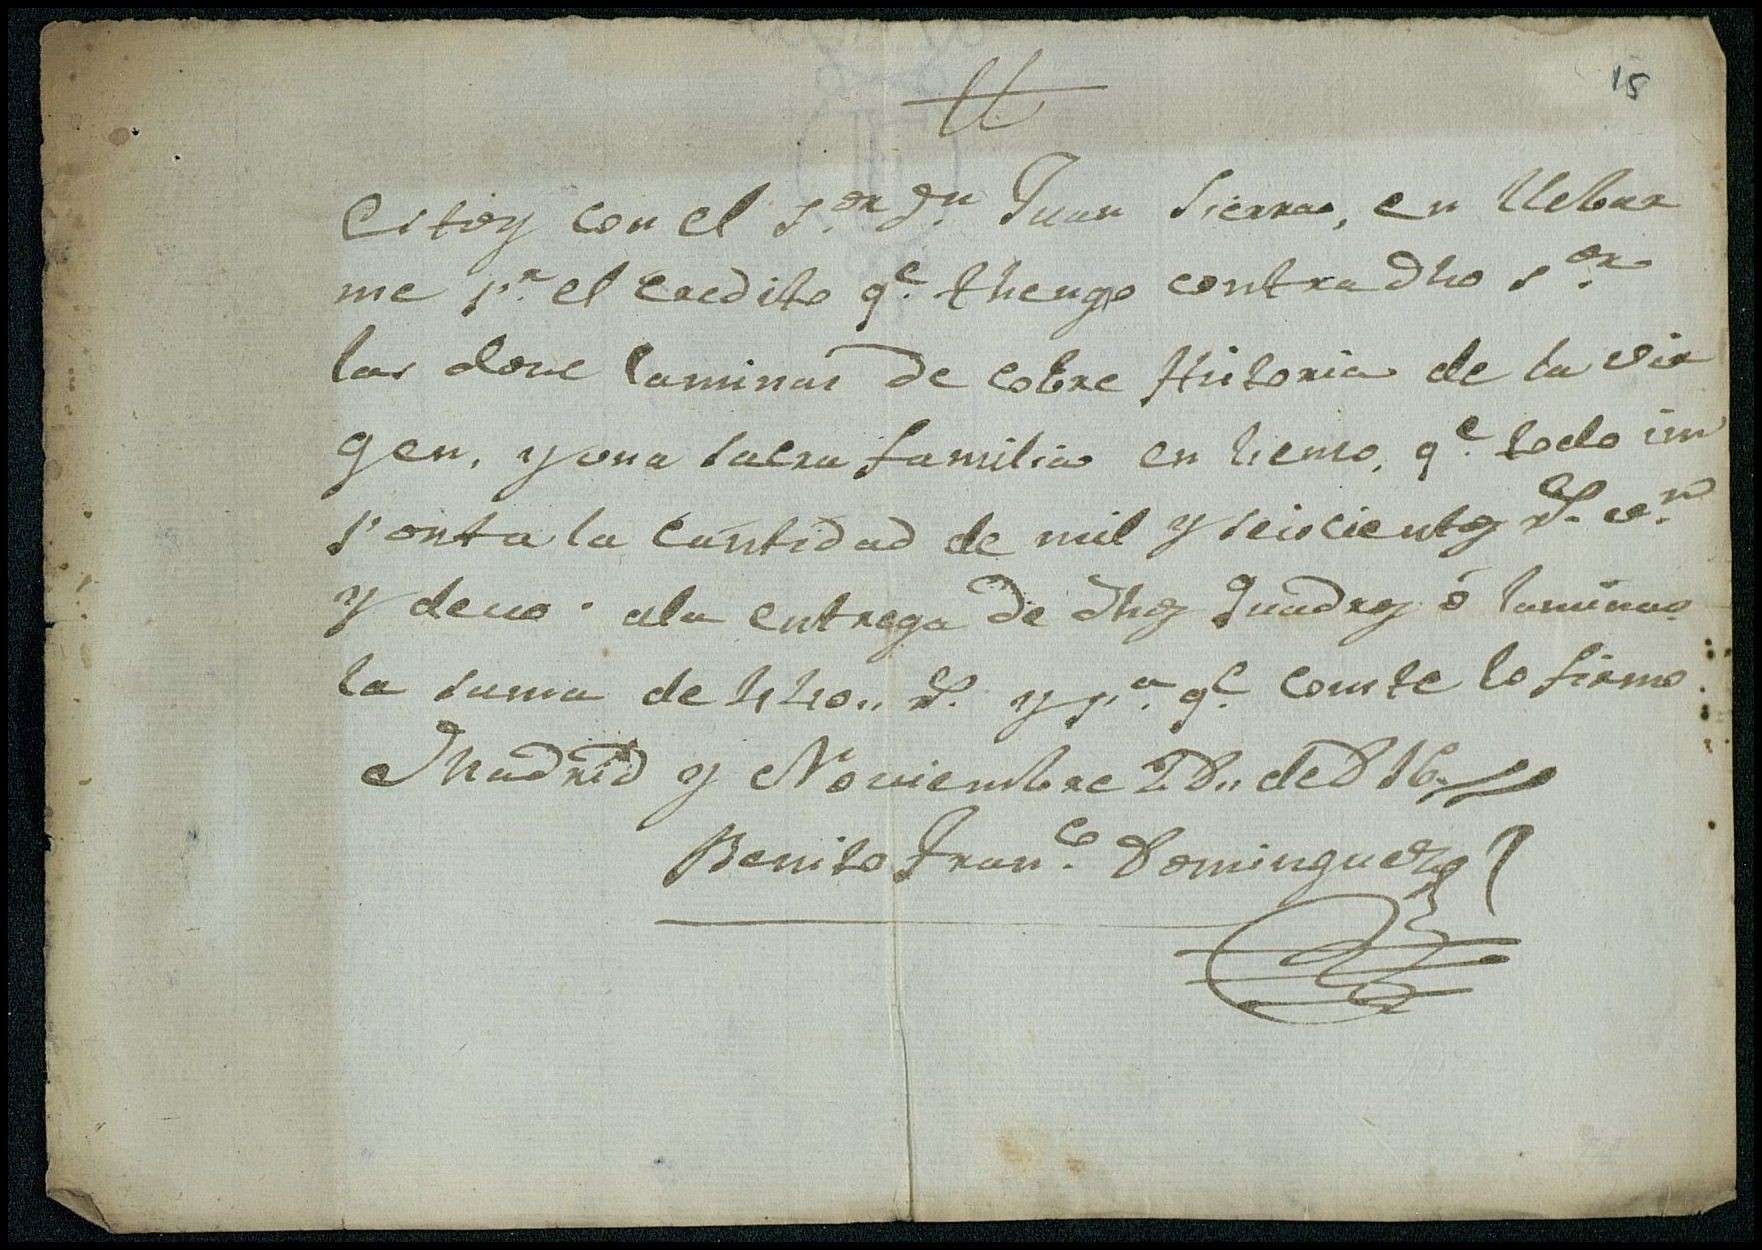 15
Estoy con el S.or D.n Juan Sierra, en llebar
me p.r el credito q.e thengo contra dho S.or
las doce laminas de cobre Historia de la Vir
gen, y una sacra familia en lienso, q.e todo im
porta la cantidad de mil y seiscientos r.s v.n
y devo a la entrega de dhos quadros ó laminas
la suma de 440,, r.s y p.a q.e conste lo firmo
Madrid y Noviembre 28,, de 816.
Benito Fran.co Dominguez